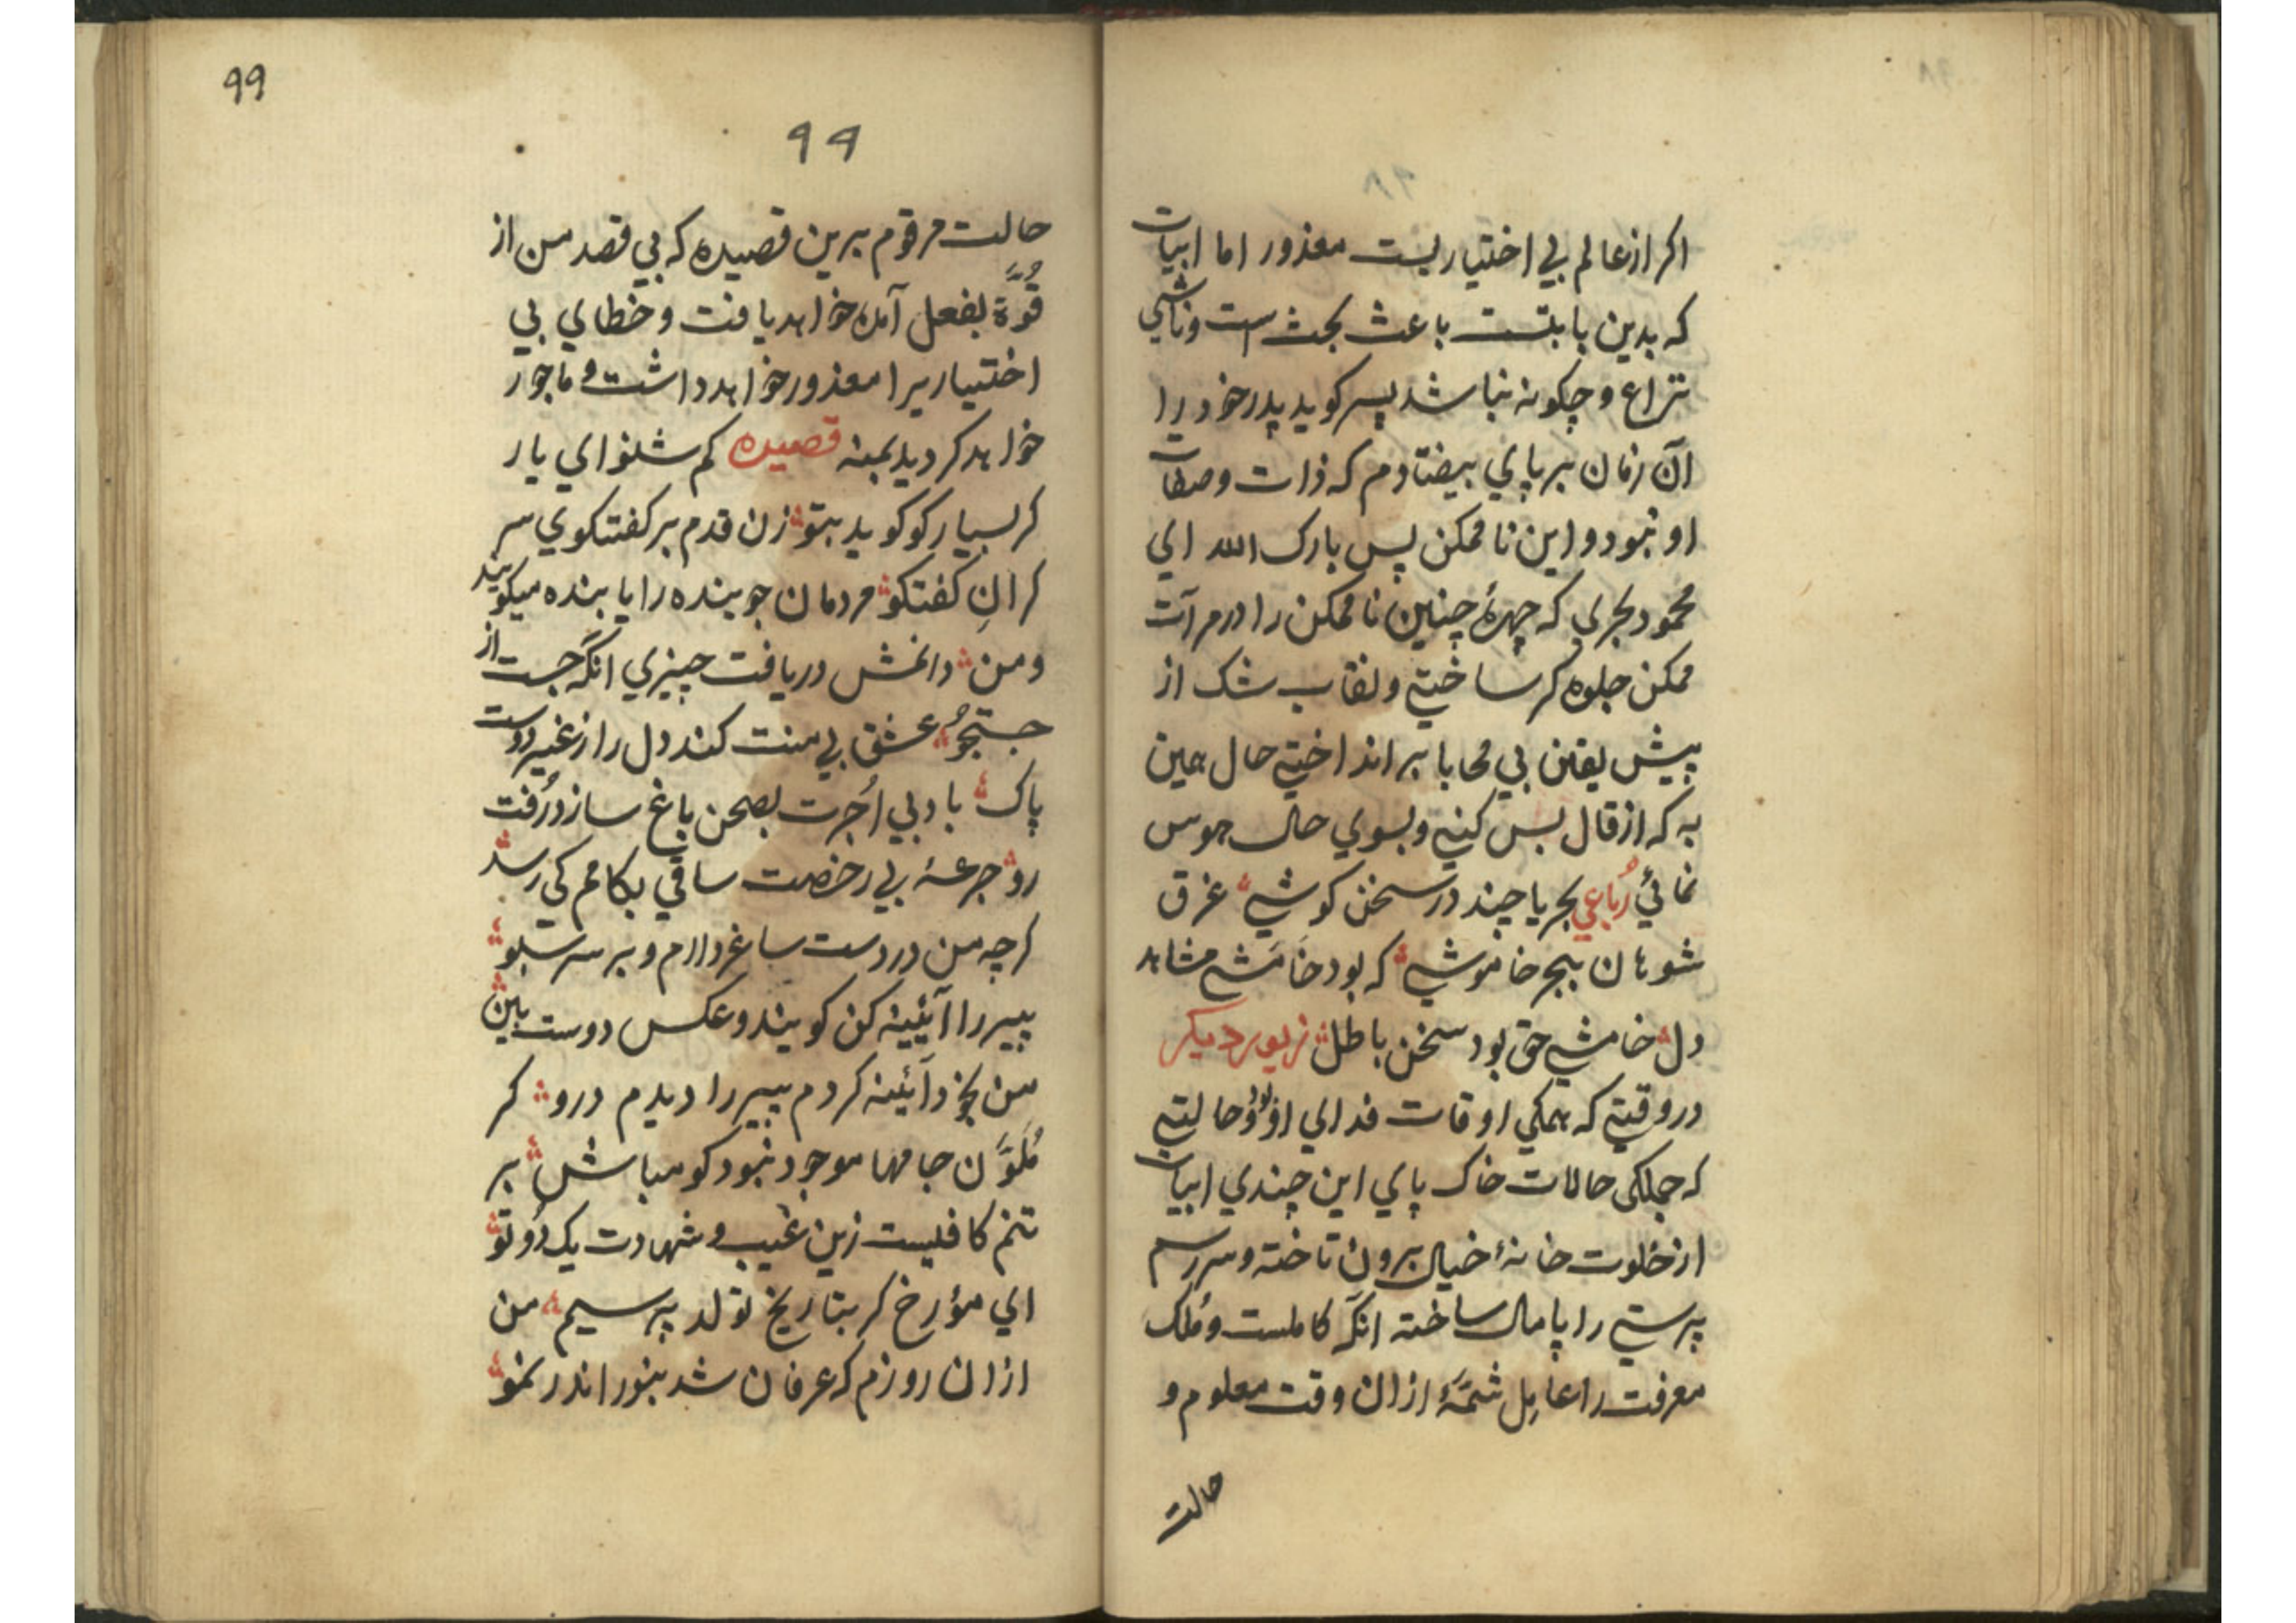 اکر از عالم بی اختیاریست معذور اما ابیات
که بدین بابتست باعث بحث است وناشی
نزاع و چکونه نباشد پسر کوید پدر خود را
آن زمان بر پای بیفتادم که ذات و صفات
او نبود و این ناممکن پس بارک الله ای
محمود بحری که چهرهٔ چنین ناممکن را در مرآت
ممکن جلوه کر ساختی و نقاب شک از
پیش یقین بی محابا بر انداختی حال همین
به که از قال بس کنی و بسوی حال هوس
نمائی رُباعی بحریا چند در سخن کوشی غرق
شو هان ببحر خاموشی که بود خامشی مشاهد
دل خامشی حق بود سخن باطل زیور دیکر
در وقتی که همکی اوقات فدای او وحالتی
که جملکی حالات خاک پای این چندی ابیات
از خلوت خانهٔ خیال برون تاخته و سر رسم
پرستی را پامال ساخته انکه کاملست و مُلک
معرفت را عامِل شمّهٔ ازان وقت معلوم و
حالت
99
99
حالت مرقوم برین قصیده که بی قصد من از
قُوَّة بفعل آمده خواهد یافت و خطای بی
اختیاریرا معذور خواهد داشت و ماجور
خواهد کردید بمنه قصیده کم شنو ای یار
کر بسیار کو کوید بتو زن قدم بر کفتکوی سر
کرانِ کفتکو مردمان جوینده را یابنده میکویند
ومن دانمش دریافت چیزی انکه جست از
جستجو عشق بی منت کند دل را ز غیر دوست
پاک باد بی اُجرت بصحن باغ سازد رُفت
رو جرعهٔ بی رخصت ساقی بکامم کی رسد
کرچه من در دست ساغر دارم و بر سر سبو
پیر را آئینه کن کویند و عکس دوست بین
من بخود آئینه کردم پیر را دیدم درو کر
مُلَوَّن جامها موجود نبود کو مباش بر
تنم کافیست زین غیب و شهادت یک دُو تو
ای مؤرخ کر بتاریخ تولد پرسیم من
ازان روزم که عرفان شد بنور اندر نمو